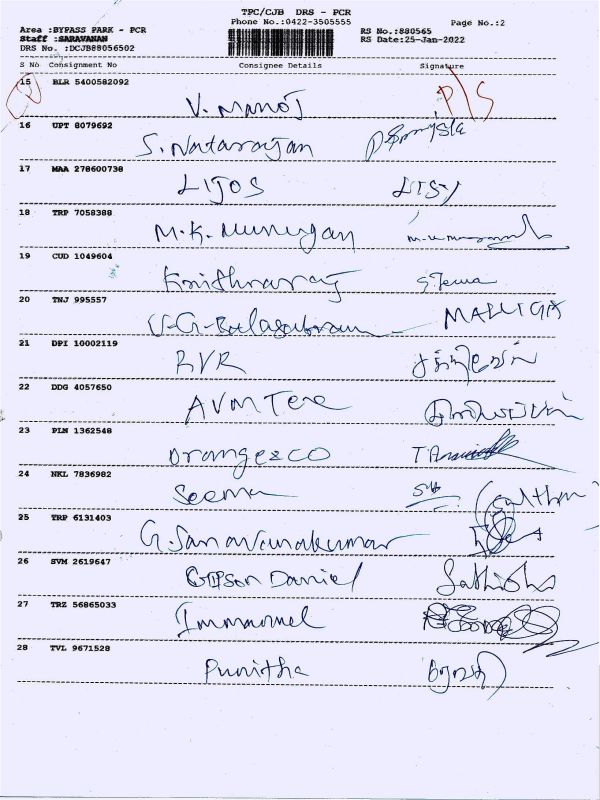 TPC/CJB DRS - PCR
Phone No.:0422-3505555
Page No.:2
Area :BYPASS PARK - PCR
Staff :SARAVANAN
DRS No. :DCJB88056502
RS No.:880565
RS Date:25-Jan-2022
S No Consignment No Consignee Details Signature
15 BLR 5400582092 V. Manoj P/S
16 UPT 8079692 S. Natarajan
17 MAA 278600738 LIJOS LISY
18 TRP 7058388 M.K. Murugan
19 CUD 1049604
20 TNJ 995557 MALLIGA
21 DPI 10002119 RVR
22 DDG 4057650
23 PLN 1362548 Orangezco
24 NKL 7836982 Seema
25 TRP 6131403 G. Saravanakumar
26 SVM 2619647 Daniel
27 TRZ 56865033 Immanuel
28 TVL 9671528 Punitha